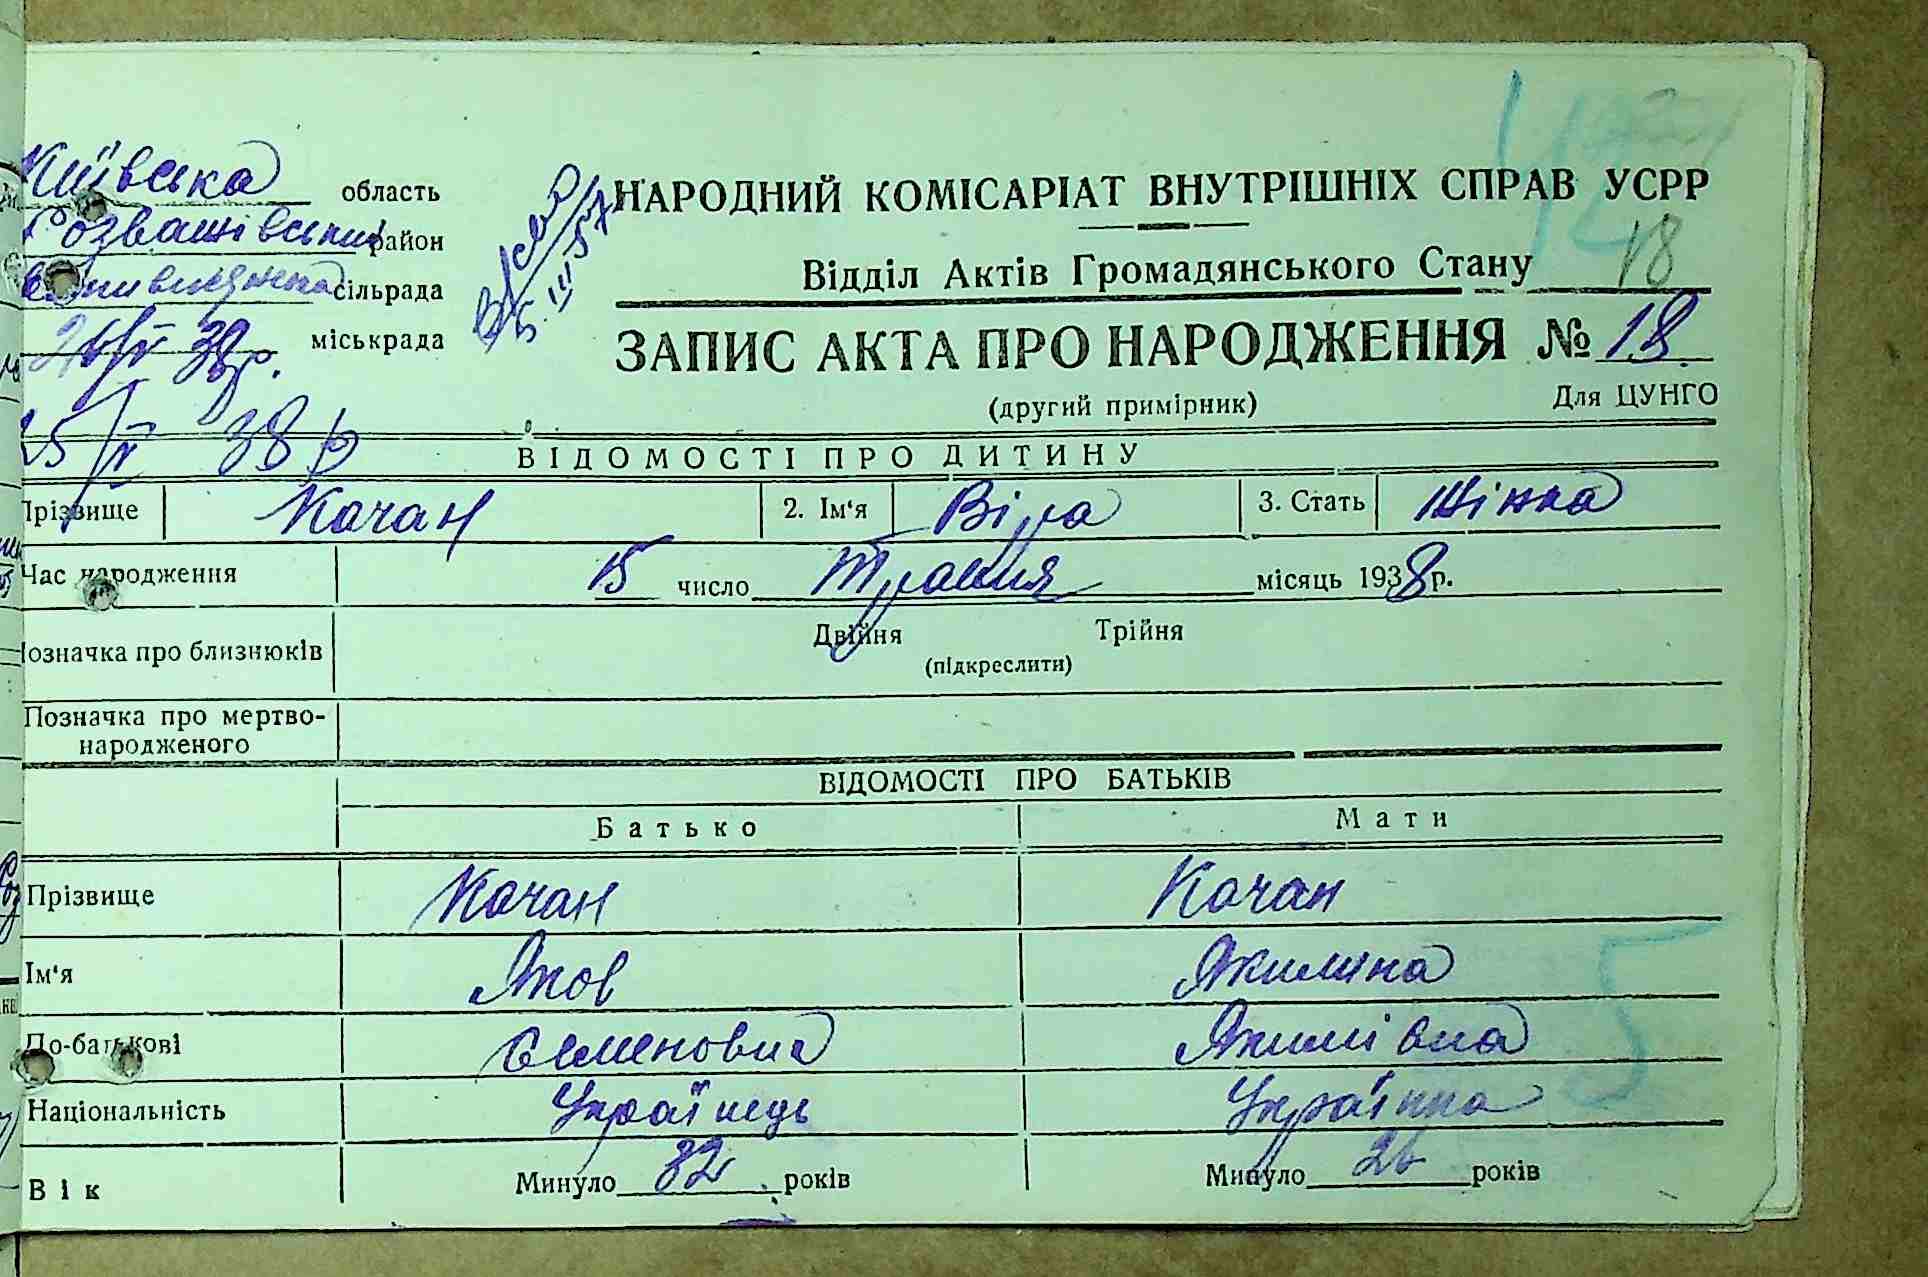 Київська область
Розважівський район
сільрада
міськрада
5.III 57
25/V 38 р
НАРОДНИЙ КОМІСАРІАТ ВНУТРІШНІХ СПРАВ УСРР
Відділ Актів Громадянського Стану
18
ЗАПИС АКТА ПРО НАРОДЖЕННЯ № 18
(другий примірник) Для ЦУНГО
ВІДОМОСТІ ПРО ДИТИНУ
Прізвище Качан 2. Ім'я Віра 3. Стать Жінка
Час народження 15 число Травня місяць 1938 р.
Позначка про близнюків Двійня Трійня
(підкреслити)
Позначка про мертво-
народженого
ВІДОМОСТІ ПРО БАТЬКІВ
Батько Мати
Прізвище Качан Качан
Ім'я Яков Якилина
По-батькові Семенович Якимівна
Національність Українець Українка
Вік Минуло 32 років Минуло 26 років